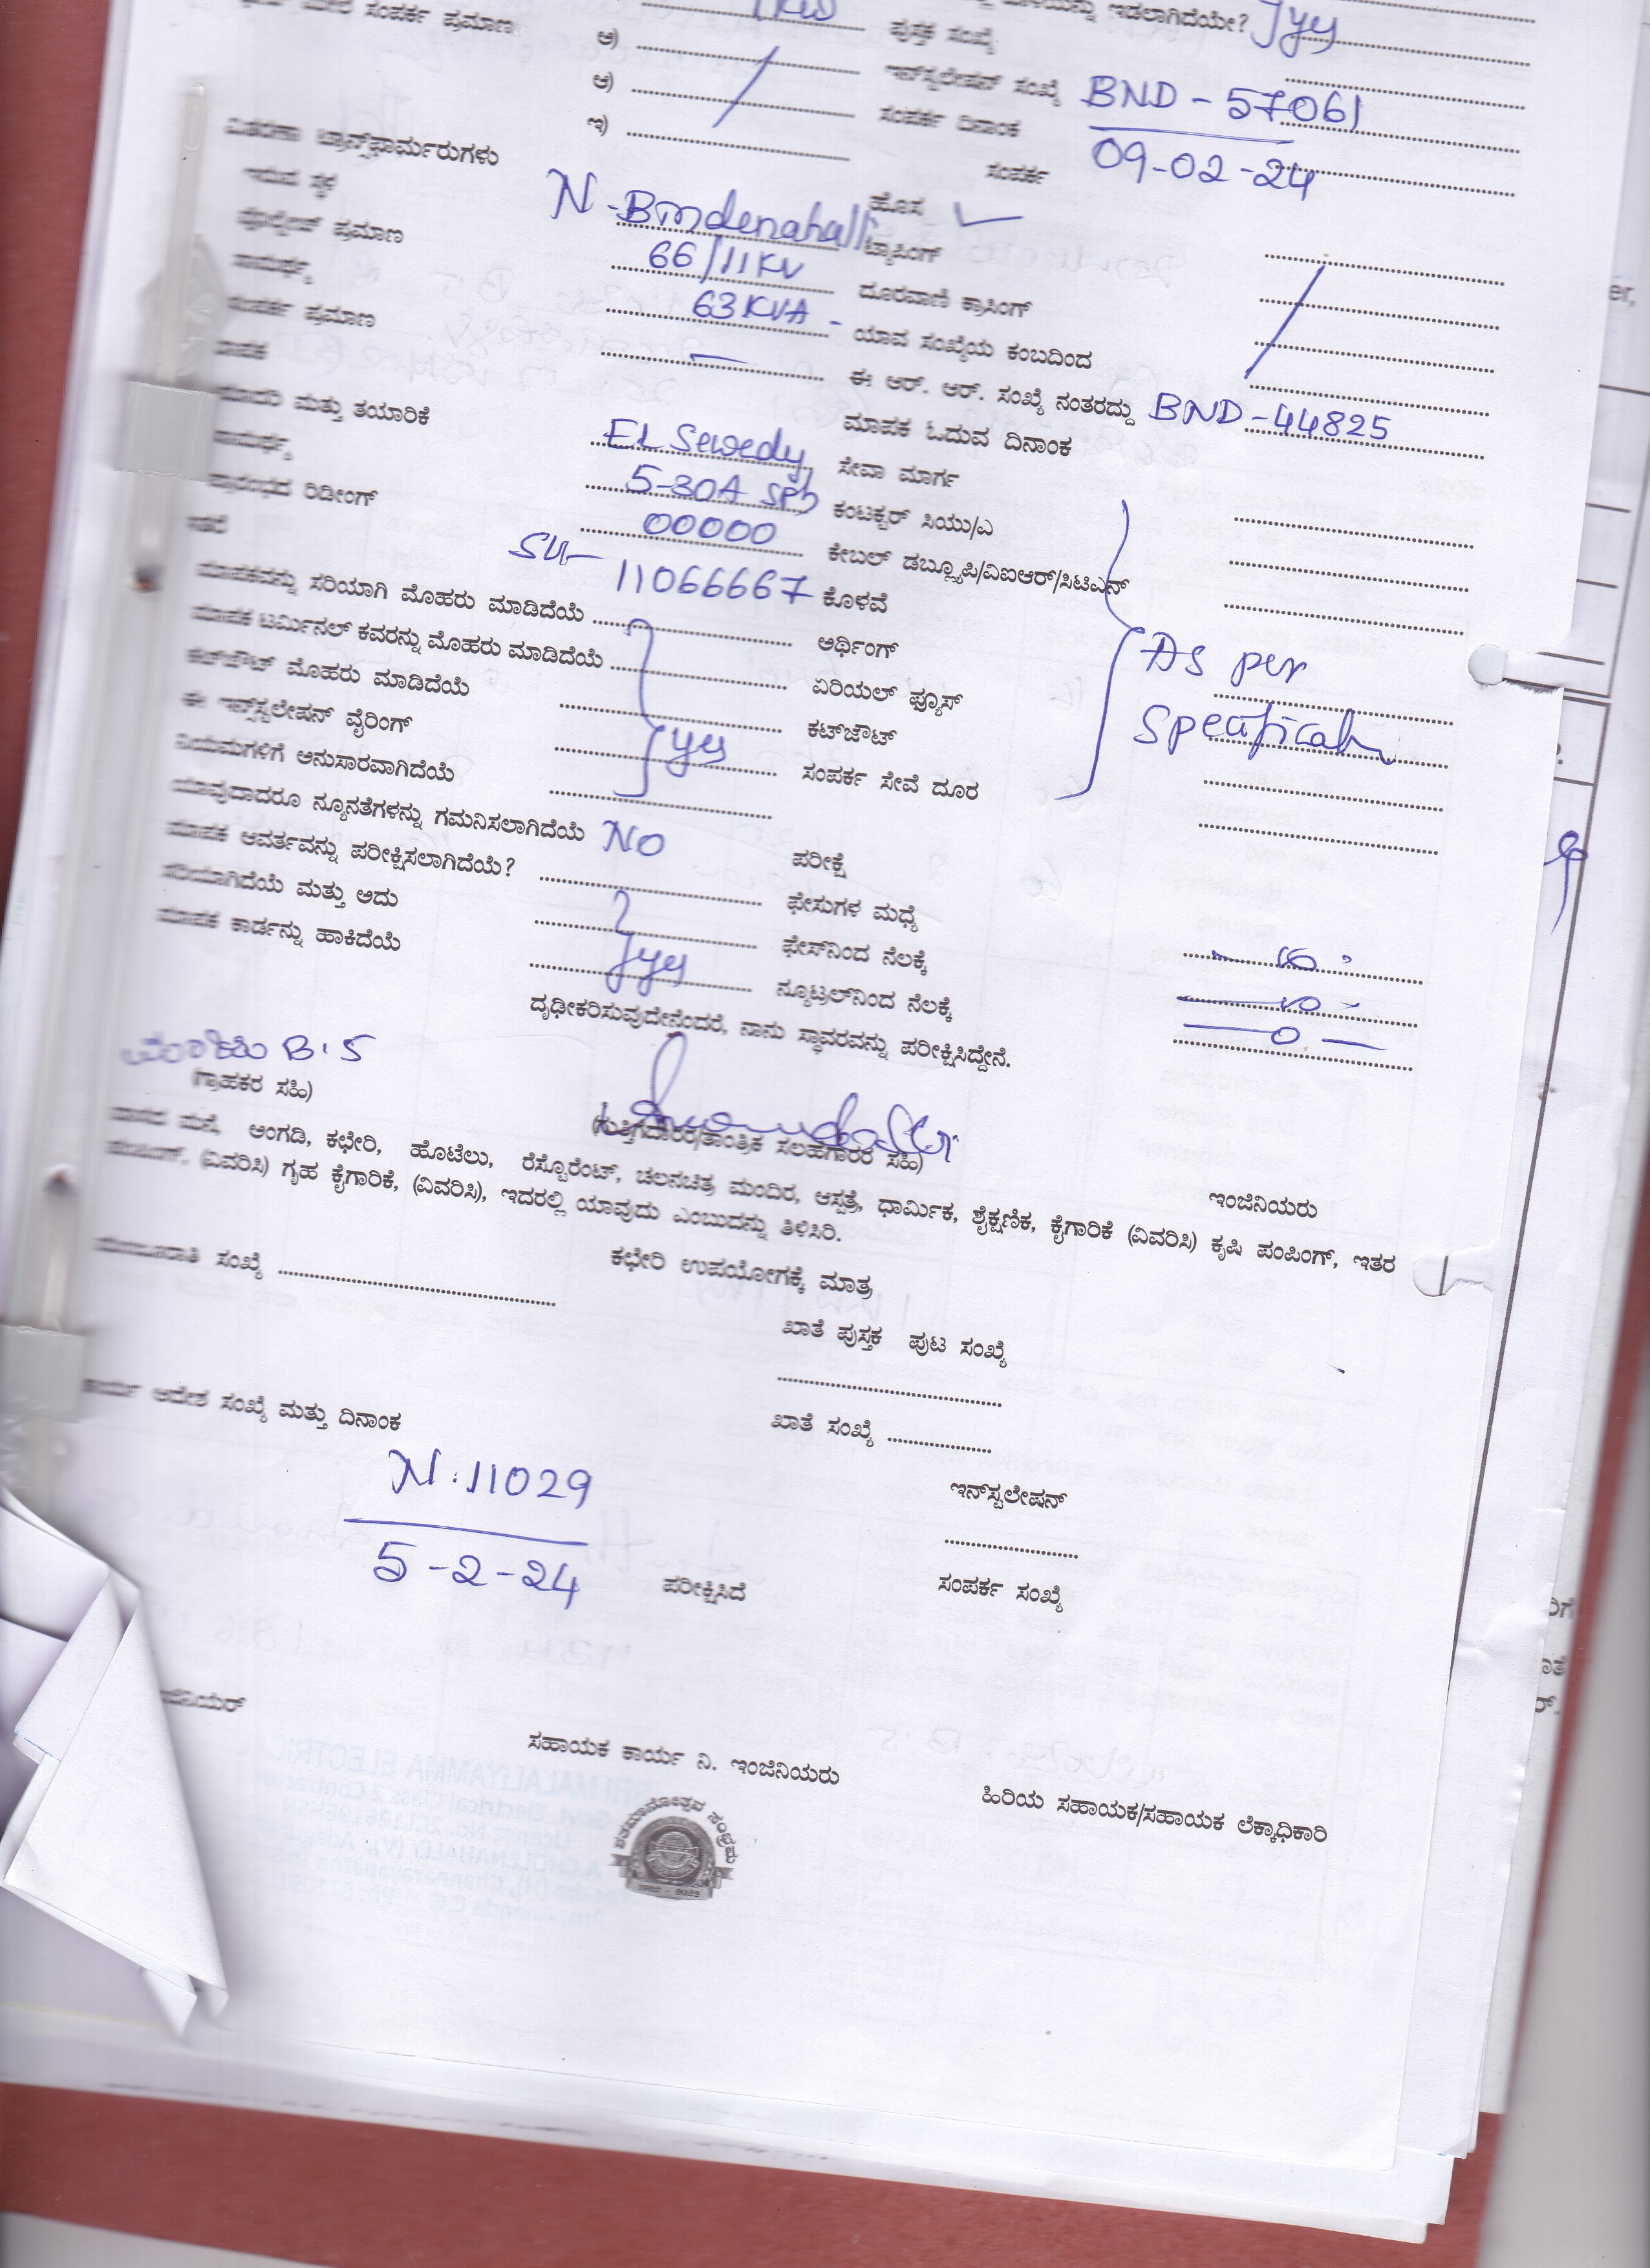 ಸಂಪರ್ಕ ಪ್ರಮಾಣ
ಇಡಲಾಗಿದೆಯೇ? yes
ಅ) ಪುಸ್ತಕ ಸಂಖ್ಯೆ
ಆ) ಇನ್‌ಸ್ಟಲೇಷನ್ ಸಂಖ್ಯೆ BND - 57061
ಇ) ಸಂಪರ್ಕ ದಿನಾಂಕ 09-02-24
ವಿತರಣಾ ಟ್ರಾನ್ಸ್‌ಫಾರ್ಮರುಗಳು ಸಂಪರ್ಕ
ಇರುವ ಸ್ಥಳ ಹೊಸ ✓
ವೋಲ್ಟೇಜ್ ಪ್ರಮಾಣ 66/11KV ಟ್ಯಾಪಿಂಗ್
ಸಾಮರ್ಥ್ಯ 63KVA - ದೂರವಾಣಿ ಕ್ರಾಸಿಂಗ್
ಸಂಪರ್ಕ ಪ್ರಮಾಣ ಯಾವ ಸಂಖ್ಯೆಯ ಕಂಬದಿಂದ
ಮಾಪಕ ಈ ಆರ್. ಆರ್. ಸಂಖ್ಯೆ ನಂತರದ್ದು BND-44825
ಮಾದರಿ ಮತ್ತು ತಯಾರಿಕೆ EL Sewedy ಮಾಪಕ ಓದುವ ದಿನಾಂಕ
ಸಾಮರ್ಥ್ಯ 5-30A ಸೇವಾ ಮಾರ್ಗ
ಪ್ರಾರಂಭದ ರಿಡೀಂಗ್ 00000 ಕಂಟಕ್ಟರ್ ಸಿಯು/ಎ
ಇತರೆ 11066667 ಕೇಬಲ್ ಡಬ್ಲ್ಯೂಪಿ/ವಿಐಆರ್/ಸಿಟಿಎನ್
ಮಾಪಕವನ್ನು ಸರಿಯಾಗಿ ಮೊಹರು ಮಾಡಿದೆಯೆ ಕೊಳವೆ
ಮಾಪಕ ಟರ್ಮಿನಲ್ ಕವರನ್ನು ಮೊಹರು ಮಾಡಿದೆಯೆ ಅರ್ಥಿಂಗ್ As per
ಕಟ್‌ಔಟ್ ಮೊಹರು ಮಾಡಿದೆಯೆ ಏರಿಯಲ್ ಫ್ಯೂಸ್
ಈ ಇನ್ಸ್‌ಸ್ಟಲೇಷನ್ ವೈರಿಂಗ್ yes ಕಟ್‌ಔಟ್
ನಿಯಮಗಳಿಗೆ ಅನುಸಾರವಾಗಿದೆಯೆ ಸಂಪರ್ಕ ಸೇವೆ ದೂರ
ಯಾವುದಾದರೂ ನ್ಯೂನತೆಗಳನ್ನು ಗಮನಿಸಲಾಗಿದೆಯೆ NO
ಮಾಪಕ ಆವರ್ತವನ್ನು ಪರೀಕ್ಷಿಸಲಾಗಿದೆಯೆ? ಪರೀಕ್ಷೆ
ಸರಿಯಾಗಿದೆಯೆ ಮತ್ತು ಅದು ಫೇಸುಗಳ ಮಧ್ಯೆ
ಮಾಪಕ ಕಾರ್ಡನ್ನು ಹಾಕಿದೆಯೆ yes ಫೇಸ್‌ನಿಂದ ನೆಲಕ್ಕೆ
ನ್ಯೂಟ್ರಲ್‌ನಿಂದ ನೆಲಕ್ಕೆ
ದೃಢೀಕರಿಸುವುದೇನೆಂದರೆ, ನಾನು ಸ್ಥಾವರವನ್ನು ಪರೀಕ್ಷಿಸಿದ್ದೇನೆ.
B.S
(ಗ್ರಾಹಕರ ಸಹಿ)
(ಗುತ್ತಿಗೆದಾರರ/ತಾಂತ್ರಿಕ ಸಲಹೆಗಾರರ ಸಹಿ)
ಇಂಜಿನಿಯರು
ವಾಸದ ಮನೆ, ಅಂಗಡಿ, ಕಛೇರಿ, ಹೊಟೆಲು, ರೆಸ್ಟೊರೆಂಟ್, ಚಲನಚಿತ್ರ ಮಂದಿರ, ಆಸ್ಪತ್ರೆ, ಧಾರ್ಮಿಕ, ಶೈಕ್ಷಣಿಕ, ಕೈಗಾರಿಕೆ (ವಿವರಿಸಿ) ಕೃಷಿ ಪಂಪಿಂಗ್, ಇತರ
ಪಂಪಿಂಗ್, (ವಿವರಿಸಿ) ಗೃಹ ಕೈಗಾರಿಕೆ, (ವಿವರಿಸಿ), ಇದರಲ್ಲಿ ಯಾವುದು ಎಂಬುದನ್ನು ತಿಳಿಸಿರಿ.
ಕಛೇರಿ ಉಪಯೋಗಕ್ಕೆ ಮಾತ್ರ
ಮಂಜೂರಾತಿ ಸಂಖ್ಯೆ
ಖಾತೆ ಪುಸ್ತಕ ಪುಟ ಸಂಖ್ಯೆ
ಕಾರ್ಯ ಆದೇಶ ಸಂಖ್ಯೆ ಮತ್ತು ದಿನಾಂಕ ಖಾತೆ ಸಂಖ್ಯೆ
N.11029
ಇನ್‌ಸ್ಟಲೇಷನ್
5-2-24
ಪರೀಕ್ಷಿಸಿದೆ ಸಂಪರ್ಕ ಸಂಖ್ಯೆ
ಸಹಾಯಕ ಕಾರ್ಯ ನಿ. ಇಂಜಿನಿಯರು
ಹಿರಿಯ ಸಹಾಯಕ/ಸಹಾಯಕ ಲೆಕ್ಕಾಧಿಕಾರಿ
ಶತಮಾನೋತ್ಸವ ಸಂಭ್ರಮ